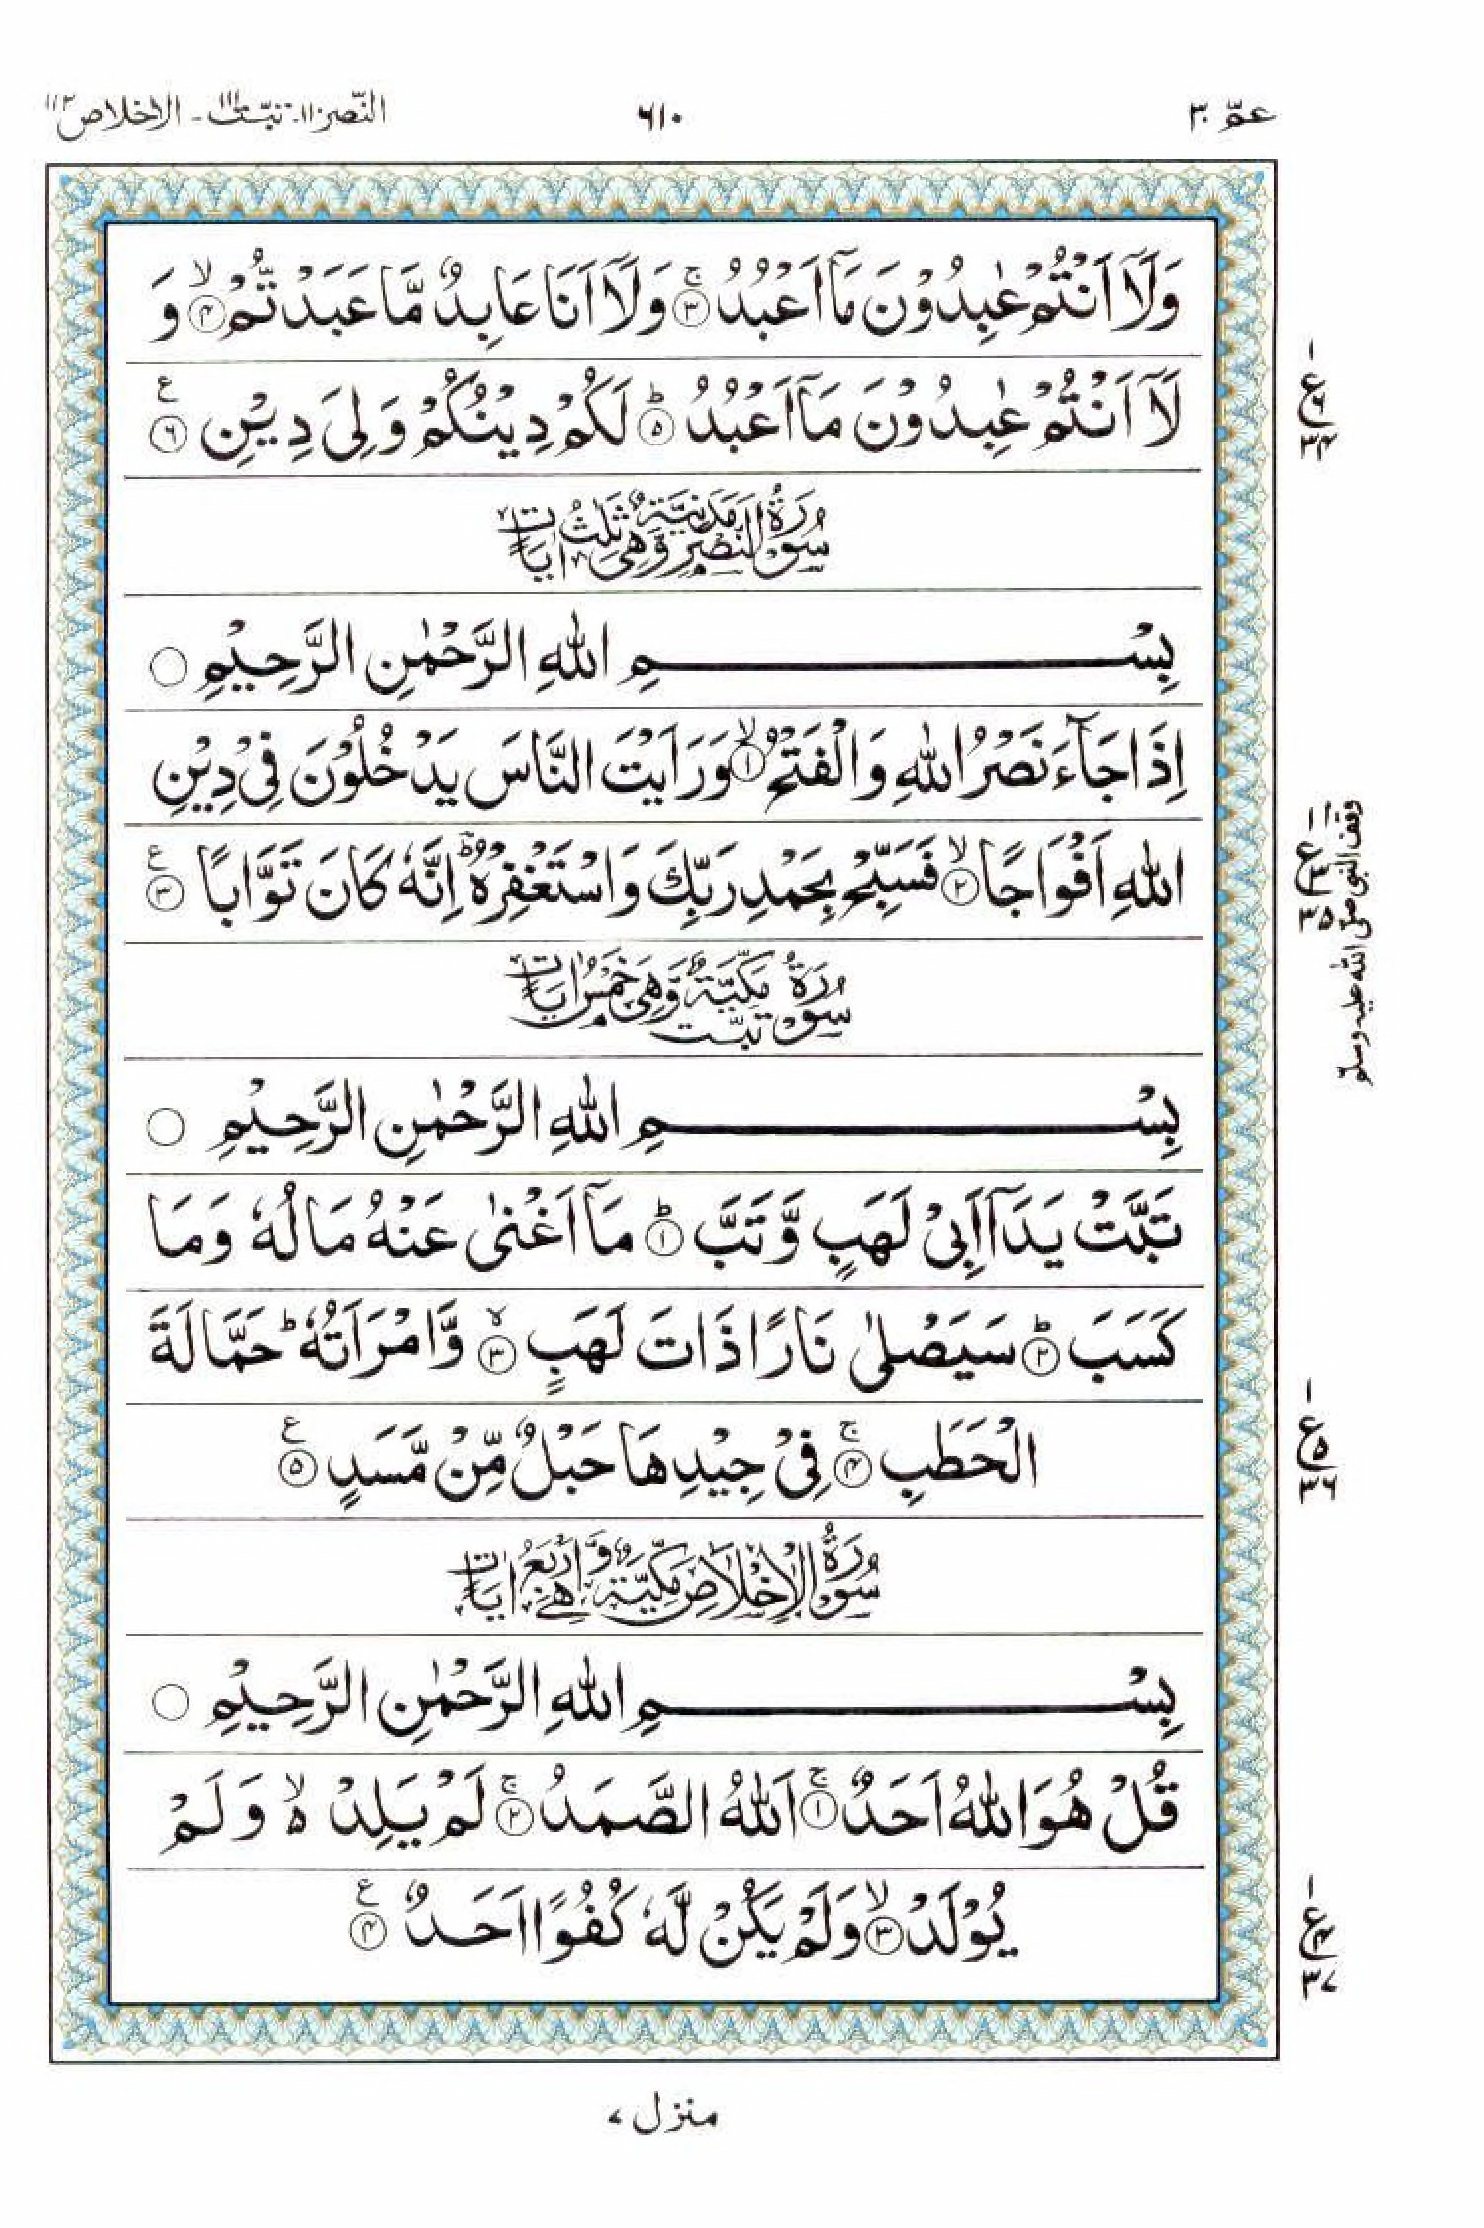 عمّ ٣٠
٦١٠
النّصر ١١٠ - تبّت ١١١ - الاخلاص ١١٢
وَلَاۤ اَنْتُمْ عٰبِدُوْنَ مَاۤ اَعْبُدُ ۚ﴿۳﴾ وَلَاۤ اَنَا عَابِدٌ مَّا عَبَدْتُّمْ ۙ﴿۴﴾ وَ
لَاۤ اَنْتُمْ عٰبِدُوْنَ مَاۤ اَعْبُدُ ؕ﴿۵﴾ لَكُمْ دِيْنُكُمْ وَلِيَ دِيْنِ ﴿۶﴾ ع
سُوْرَةُ النَّصْرِ مَدَنِيَّةٌ وَّهِيَ ثَلٰثُ اٰيَاتٍ
بِسْمِ اللّٰهِ الرَّحْمٰنِ الرَّحِيْمِ ○
اِذَا جَآءَ نَصْرُ اللّٰهِ وَالْفَتْحُ ۙ﴿۱﴾ وَرَاَيْتَ النَّاسَ يَدْخُلُوْنَ فِيْ دِيْنِ
اللّٰهِ اَفْوَاجًا ۙ﴿۲﴾ فَسَبِّحْ بِحَمْدِ رَبِّكَ وَاسْتَغْفِرْهُ ؕ اِنَّهٗ كَانَ تَوَّابًا ﴿۳﴾ ع
سُوْرَةُ تَبَّتْ مَكِّيَّةٌ وَّهِيَ خَمْسُ اٰيَاتٍ
بِسْمِ اللّٰهِ الرَّحْمٰنِ الرَّحِيْمِ ○
تَبَّتْ يَدَاۤ اَبِيْ لَهَبٍ وَّتَبَّ ؕ﴿۱﴾ مَاۤ اَغْنٰى عَنْهُ مَالُهٗ وَمَا
كَسَبَ ؕ﴿۲﴾ سَيَصْلٰى نَارًا ذَاتَ لَهَبٍ ۙ﴿۳﴾ وَّامْرَاَتُهٗ ؕ حَمَّالَةَ
الْحَطَبِ ۚ﴿۴﴾ فِيْ جِيْدِهَا حَبْلٌ مِّنْ مَّسَدٍ ﴿۵﴾ ع
سُوْرَةُ الْاِخْلَاصِ مَكِّيَّةٌ وَّهِيَ اَرْبَعُ اٰيَاتٍ
بِسْمِ اللّٰهِ الرَّحْمٰنِ الرَّحِيْمِ ○
قُلْ هُوَ اللّٰهُ اَحَدٌ ۚ﴿۱﴾ اَللّٰهُ الصَّمَدُ ۚ﴿۲﴾ لَمْ يَلِدْ ۙ۬ وَلَمْ
يُوْلَدْ ۙ﴿۳﴾ وَلَمْ يَكُنْ لَّهٗ كُفُوًا اَحَدٌ ﴿۴﴾ ع
١ ع ٦ ٣٤
١ ع ٣ ٣٥
وقف النبی صلی الله علیه وسلم
١ ع ٥ ٣٦
١ ع ٤ ٣٧
منزل ٧